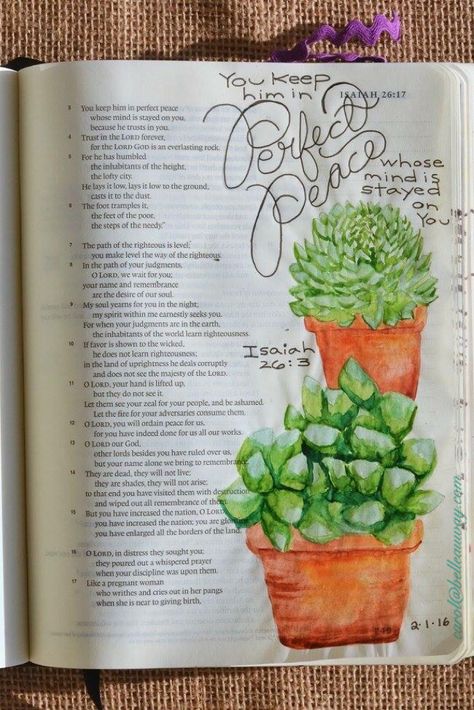 You keep
him in
Perfect
Peace
whose
mind is
stayed
on
You
Isaiah
26:3
ISAIAH 26:17
3 You keep him in perfect peace
whose mind is stayed on you,
because he trusts in you.
4 Trust in the LORD forever,
for the LORD GOD is an everlasting rock.
5 For he has humbled
the inhabitants of the height,
the lofty city.
He lays it low, lays it low to the ground,
casts it to the dust.
6 The foot tramples it,
the feet of the poor,
the steps of the needy.”
7 The path of the righteous is level;
you make level the way of the righteous.
8 In the path of your judgments,
O LORD, we wait for you;
your name and remembrance
are the desire of our soul.
9 My soul yearns for you in the night;
my spirit within me earnestly seeks you.
For when your judgments are in the earth,
the inhabitants of the world learn righteousness.
10 If favor is shown to the wicked,
he does not learn righteousness;
in the land of uprightness he deals corruptly
and does not see the majesty of the LORD.
11 O LORD, your hand is lifted up,
but they do not see it.
Let them see your zeal for your people, and be ashamed.
Let the fire for your adversaries consume them.
12 O LORD, you will ordain peace for us,
for you have indeed done for us all our works.
13 O LORD our God,
other lords besides you have ruled over us,
but your name alone we bring to remembrance.
14 They are dead, they will not live;
they are shades, they will not arise;
to that end you have visited them with destruction
and wiped out all remembrance of them.
15 But you have increased the nation, O LORD,
you have increased the nation; you are
you have enlarged all the borders of the land.
16 O LORD, in distress they sought you;
they poured out a whispered prayer
when your discipline was upon them.
17 Like a pregnant woman
who writhes and cries out in her pangs
when she is near to giving birth,
2·1·16
carol@bellauway.com